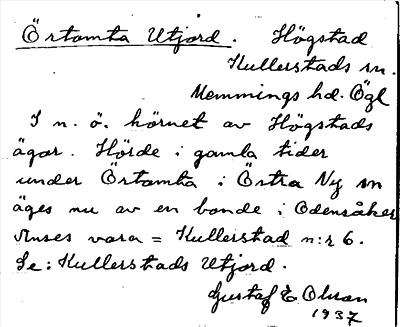 Örtomta Utjord. Högstad
Kullerstads sn.
Memmings hd. Ögl
I n. ö. hörnet av Högstads
ägor. Hörde i gamla tider
under Örtomta i Östra Ny sn
äges nu av en bonde i Odensåker
Anses vara = Kullerstad n:r 6.
Se: Kullerstads Utjord.
Gustaf E Olsson
1937